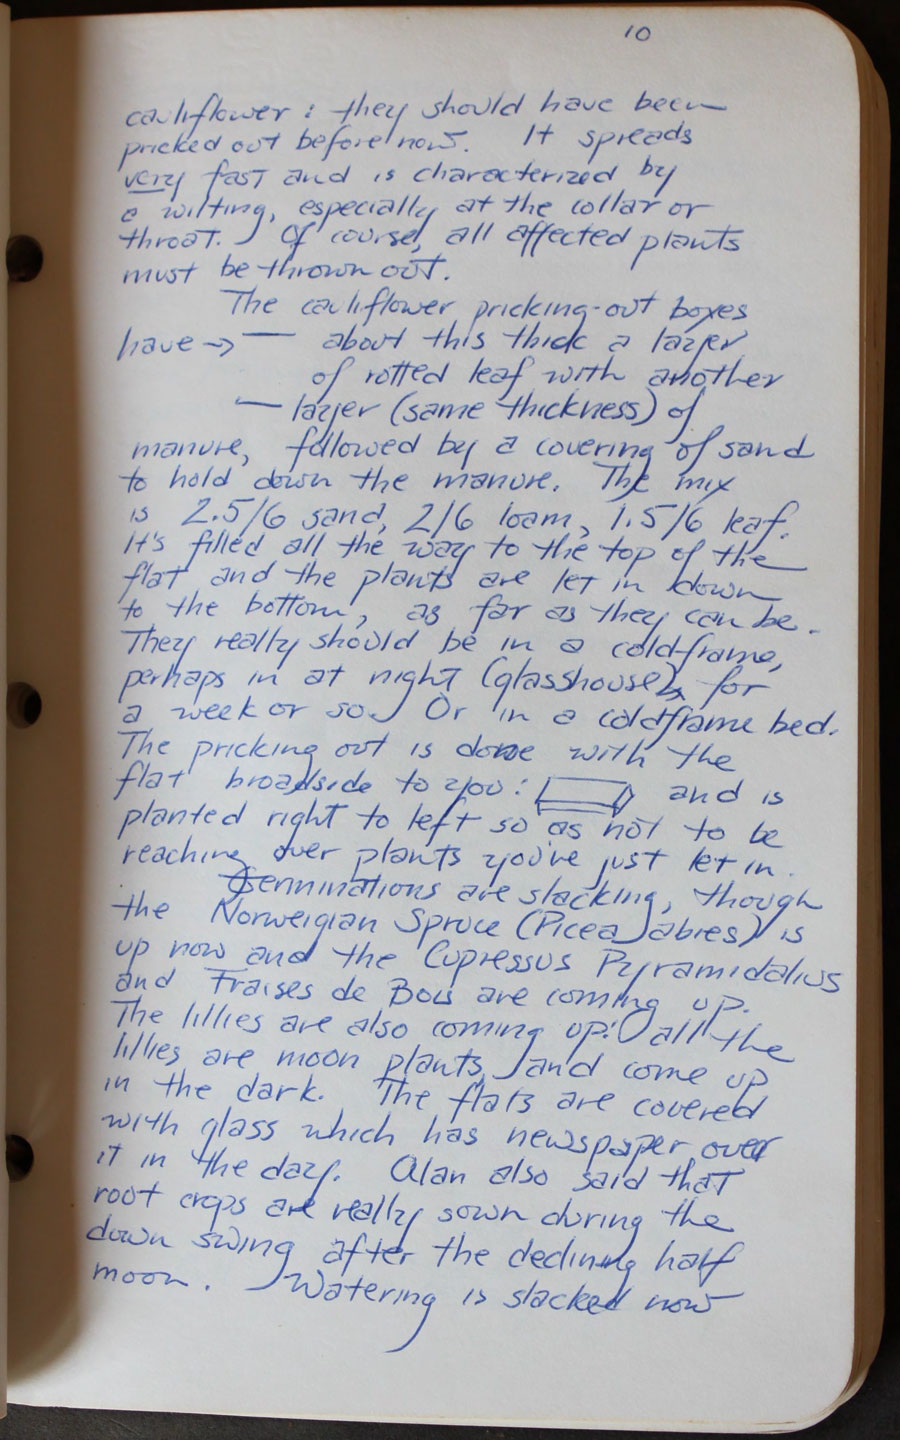 10
cauliflower: they should have been
pricked out before now. It spreads
very fast and is characterized by
a wilting, especially at the collar or
throat. Of course, all affected plants
must be thrown out.
The cauliflower pricking-out boxes
have → — about this thick a layer
of rotted leaf with another
— layer (same thickness) of
manure, followed by a covering of sand
to hold down the manure. The mix
is 2.5/6 sand, 2/6 loam, 1.5/6 leaf.
It's filled all the way to the top of the
flat and the plants are let in down
to the bottom, as far as they can be.
They really should be in a coldframe,
perhaps in at night (glasshouse), for
a week or so. Or in a coldframe bed.
The pricking out is done with the
flat broadside to you: and is
planted right to left so as not to be
reaching over plants you've just let in.
Germinations are slacking, though
the Norweigian Spruce (Picea abies) is
up now and the Cupressus Pyramidalius
and Fraises de Bois are coming up.
The lillies are also coming up: all the
lillies are moon plants and come up
in the dark. The flats are covered
with glass which has newspaper over
it in the day. Alan also said that
root crops are really sown during the
down swing after the declining half
moon. Watering is slacked now